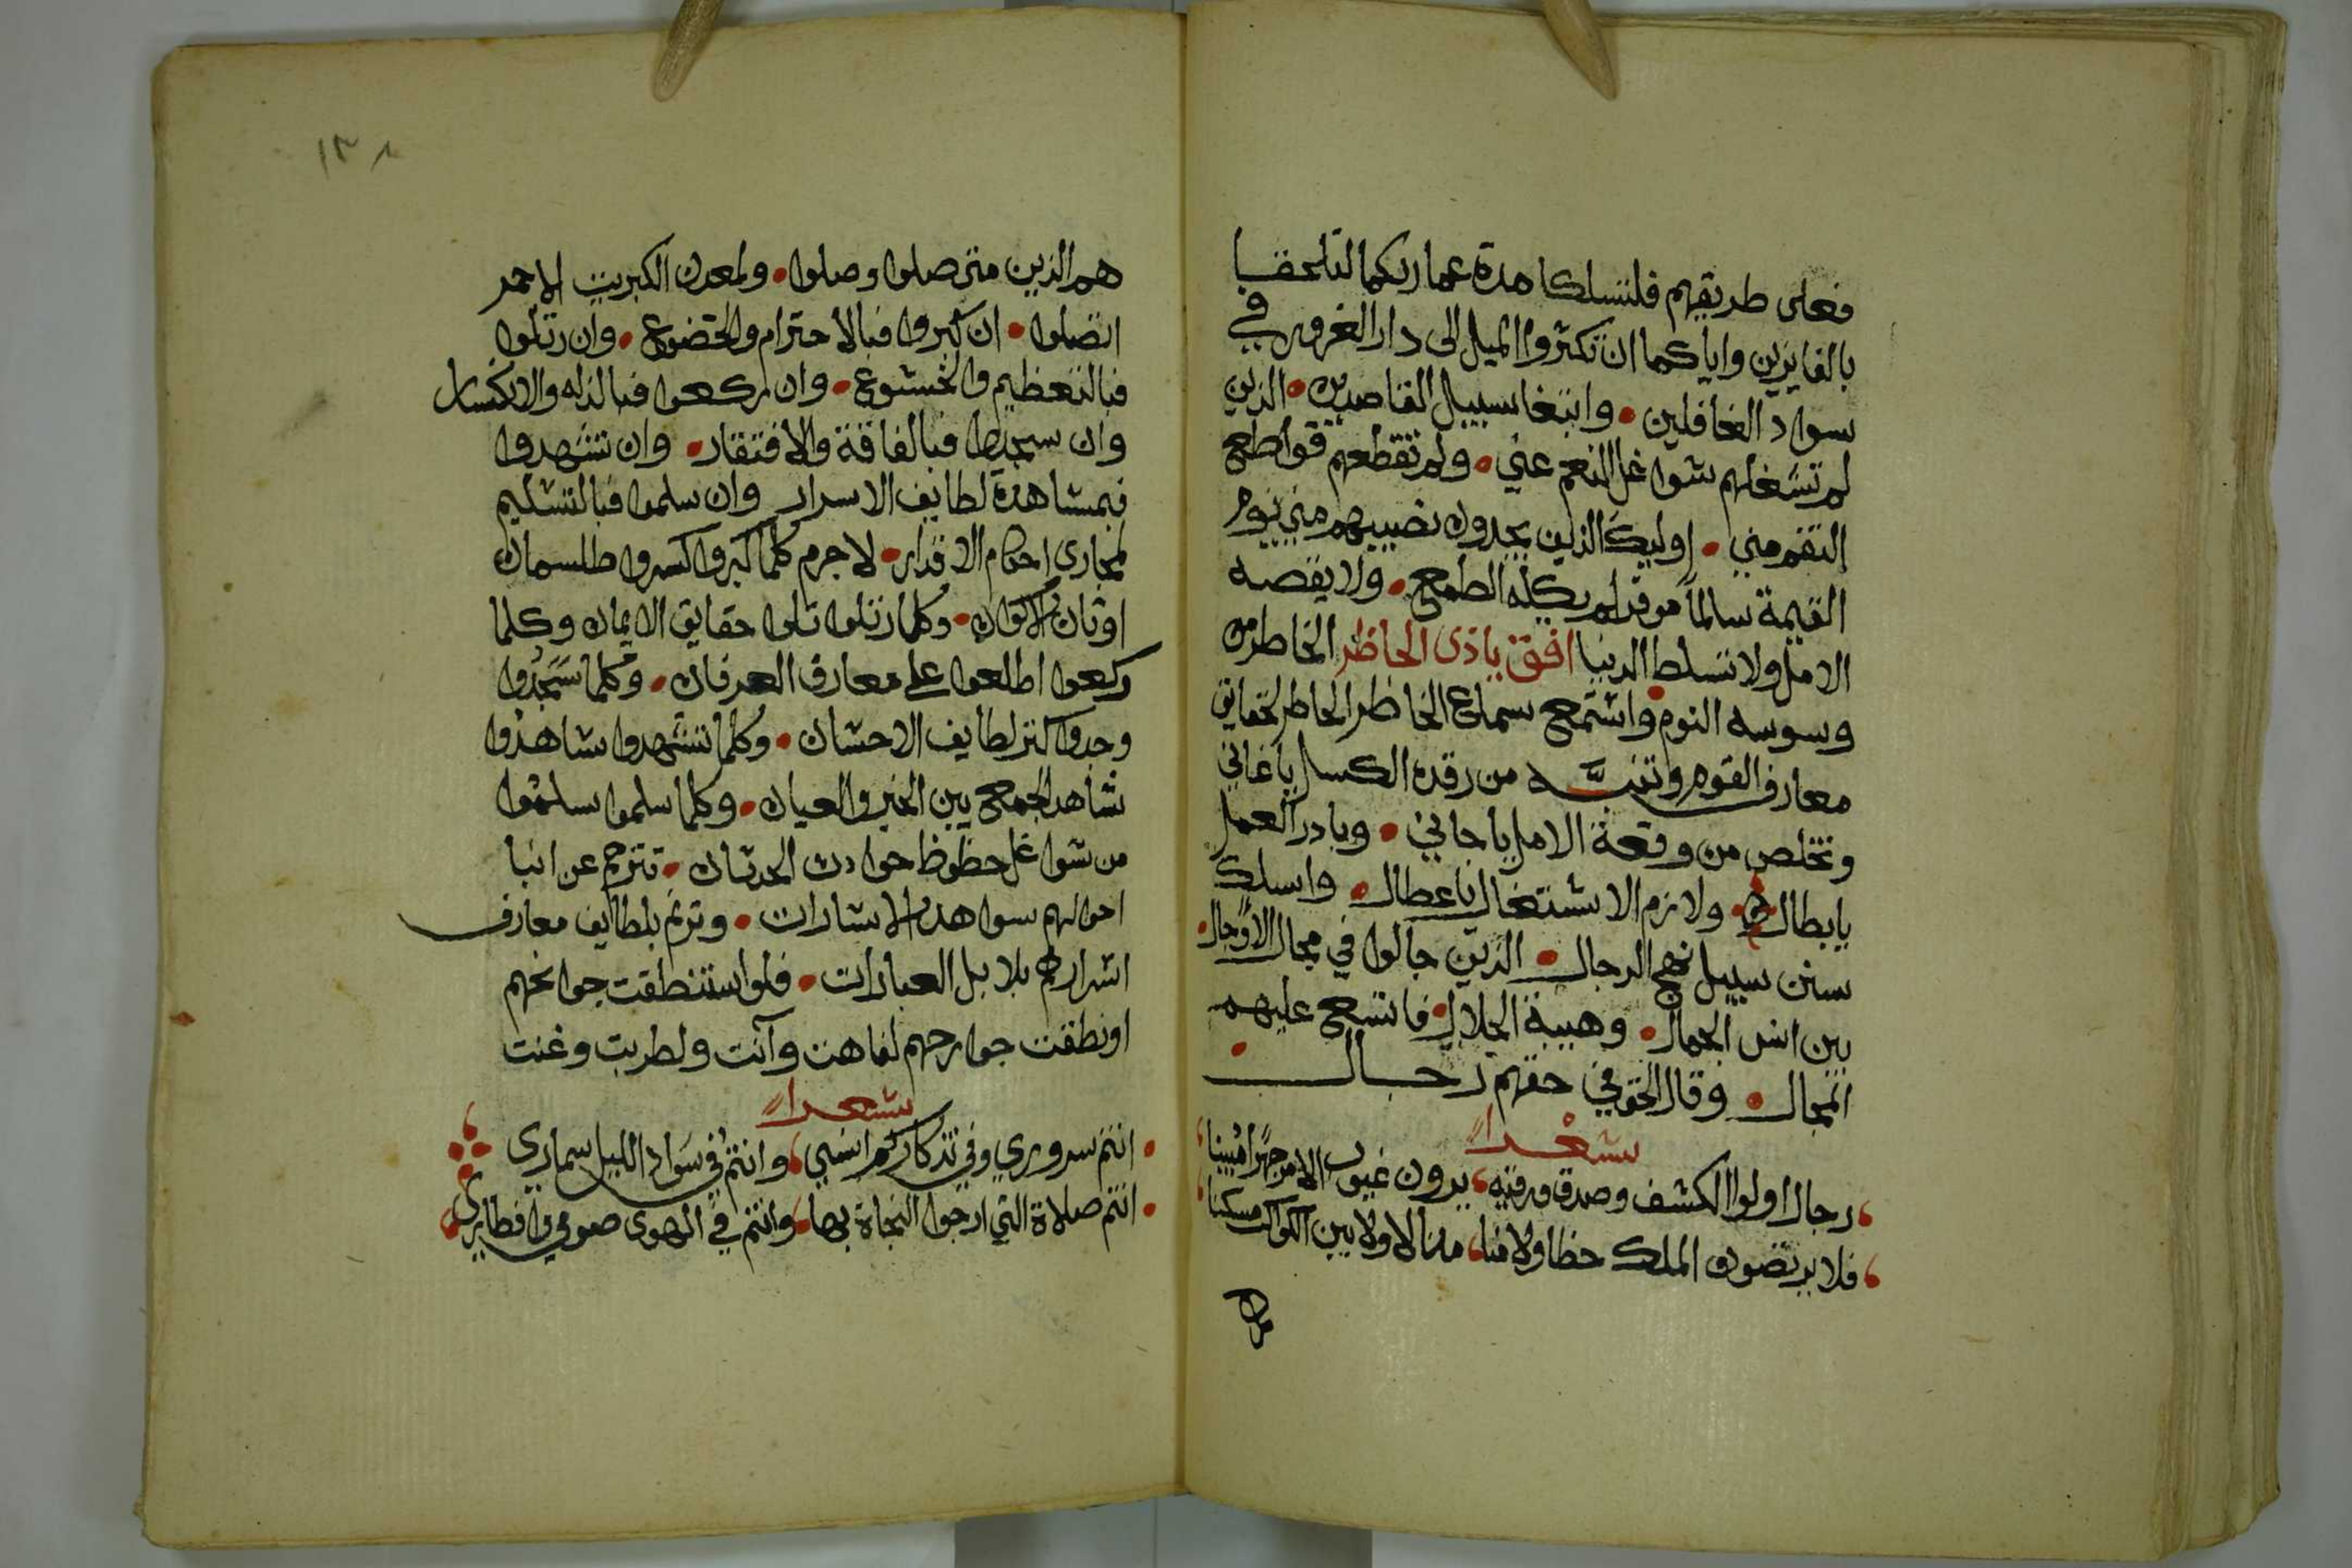 فعلى طريقهم فلتسلكا مدة عماركما لتلحقا
بالفايزين واياكما ان تكثروا الميل الى دار الغرور في
سواد الغافلين • وابتغا سبيل القاصدين • الذين
لم تشغلهم شواغل النعم عني • ولم تقطعهم قواطع
النقم مني • اوليك الذين يجدون نصيبهم مني يوم
القيمة سالما موفرا لم يكله الطمع • ولا يقصه
الامل ولا تسلط الدنيا افق ياذى الحاظر الخاطر من
وسوسه النوم • واستمع سماع الخاطر الحاظر لحقايق
معارف القوم وتنبه من رقدة الكسل يا غاني
وتخلص من وقعة الامل يا جاني • وبادر العمل
يا بطال • ولازم الاشتغال يا عطال • واسلك
سنن سبيل نهج الرجال • الذين جالوا في مجال الاوجال •
بين انس الجمال • وهيبة الجلال • فاتسع عليهم
المجال • وقال الحق في حقهم رجال •
شعرا
رجال اولوا الكشف وصدق ورقيه، يرون غيوب الامر جهرا مبينا،
فلا يرتضون الملك حظا ولا منا، منالا ولا بين الكواكب مسكنا،
هم
١٣٨
هم الذين متى صلوا وصلوا • ولمعدن الكبريت الاحمر
اتصلوا • ان كبروا فبالاحترام والخضوع • وان رتلوا
فبالتعظيم والخشوع • وان ركعوا فبالذله والانكسار
وان سجدوا فبالفاقة والافتقار • وان تشهدوا
فبمشاهدة لطايف الاسرار وان سلموا فبالتسليم
لمجارى احكام الاقدار • لا جرم كلما كبروا كسروا طلسمات
اوثان الاكوان • وكلما رتلوا تلوا حقايق الايمان وكلما
ركعوا اطلعوا على معارف العرفان • وكلما سجدوا
وجدوا كنز لطايف الاحسان • وكلما تشهدوا شاهدوا
شاهد الجمع بين الخبر والعيان • وكلما سلموا سلموا
من شواغل حظوظ حوادث الحدثان • تترجم عن انبا
احوالهم سواهد الاشارات • وترنم بلطايف معارف
اسرارهم بلابل العبارات • فلو استنطقت جوانحهم
او نطقت جوارحهم لفاهت وآنت ولطربت وغنت
شعرا
• انتم سروري وفي تذكاركم انسي، وانتم في سواد الليل سماري
• انتم صلاة التي ارجوا النجاة بها، وانتم في الهوى صومي وافطاري